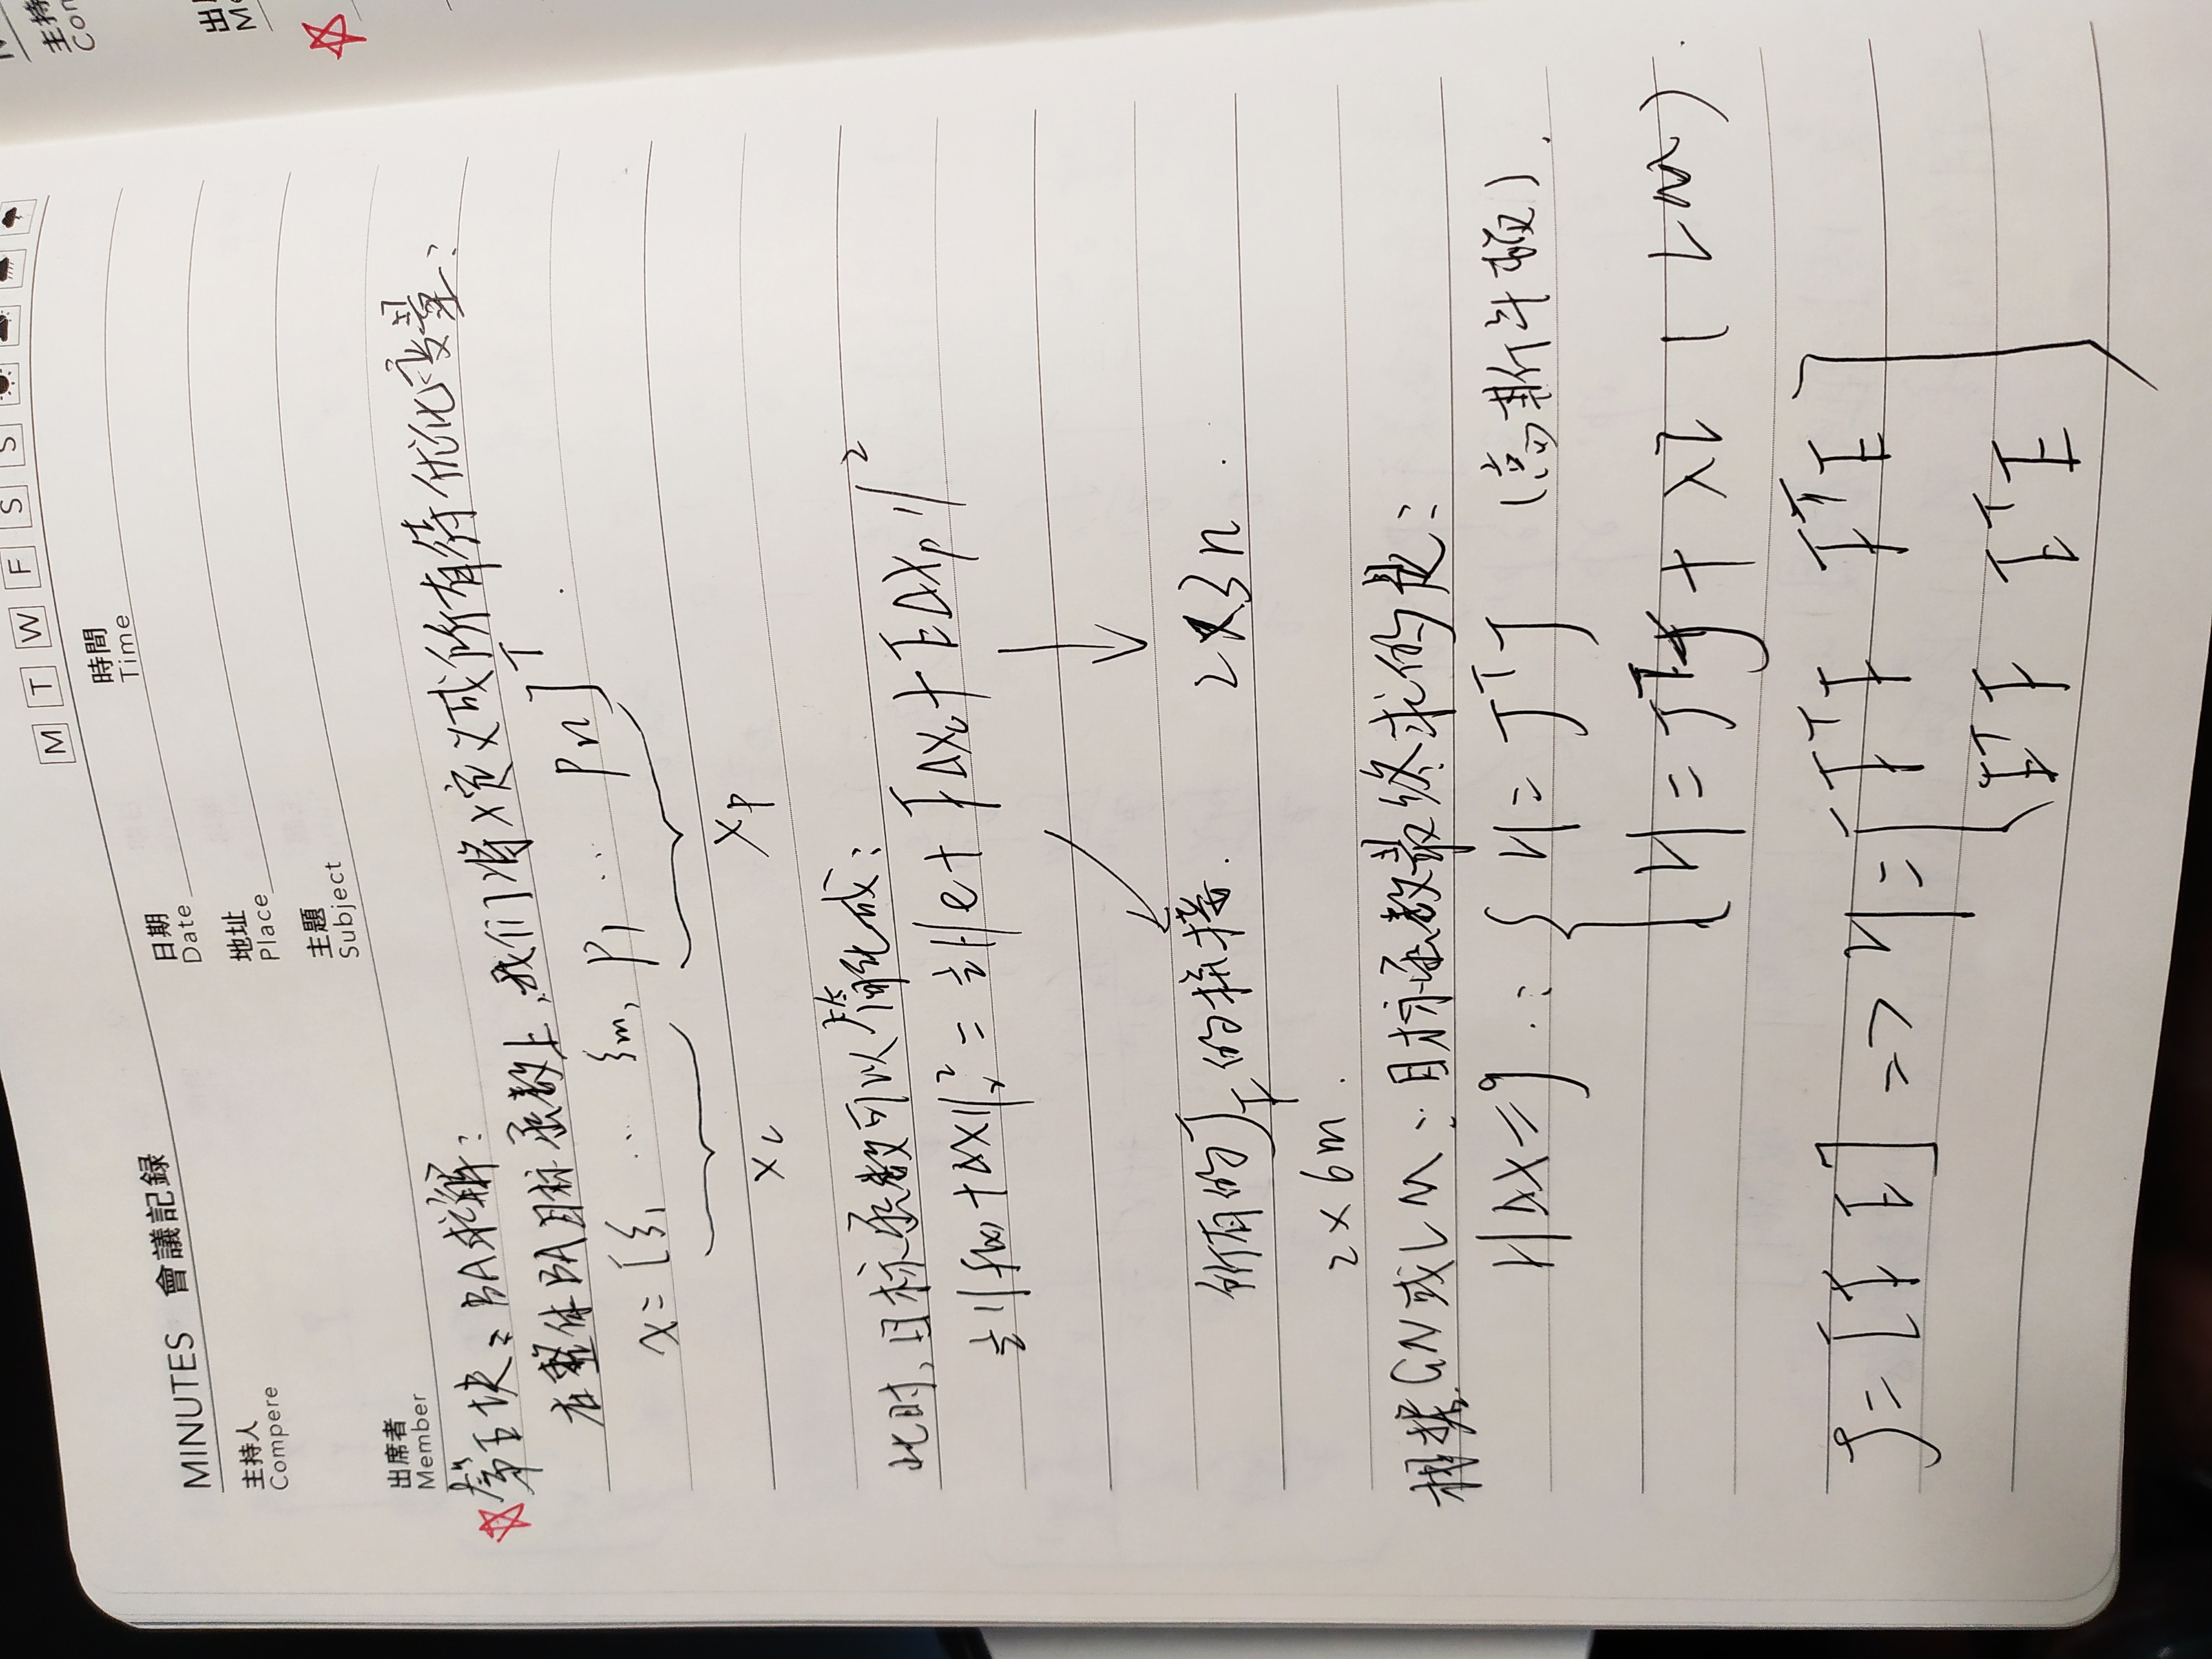 M T W F S S
MINUTES 會議記録
日期
Date
時間
Time
主持人
Compere
地址
Place
主題
Subject
出席者
Member
第五块：BA求解：
在整体BA目标函数上，我们将x定义成所有待优化变量：
x=[ξ₁ ... ξm, p₁ ... pn]ᵀ.
xc xp
此时，目标函数可以简化成：
½||f(x)+Δx||₂² = ½||e+FΔxc+EΔxp||²
所有的J_F的拼接. 2×3n.
2×6m.
根据GN或LM：目标函数最终求的是：
HΔx=g ∴ { H=JᵀJ (高斯牛顿).
H=JᵀJ+λI (LM).
J=[F E] => H=[FᵀF FᵀE
EᵀF EᵀE]
主持
Con
出
Me